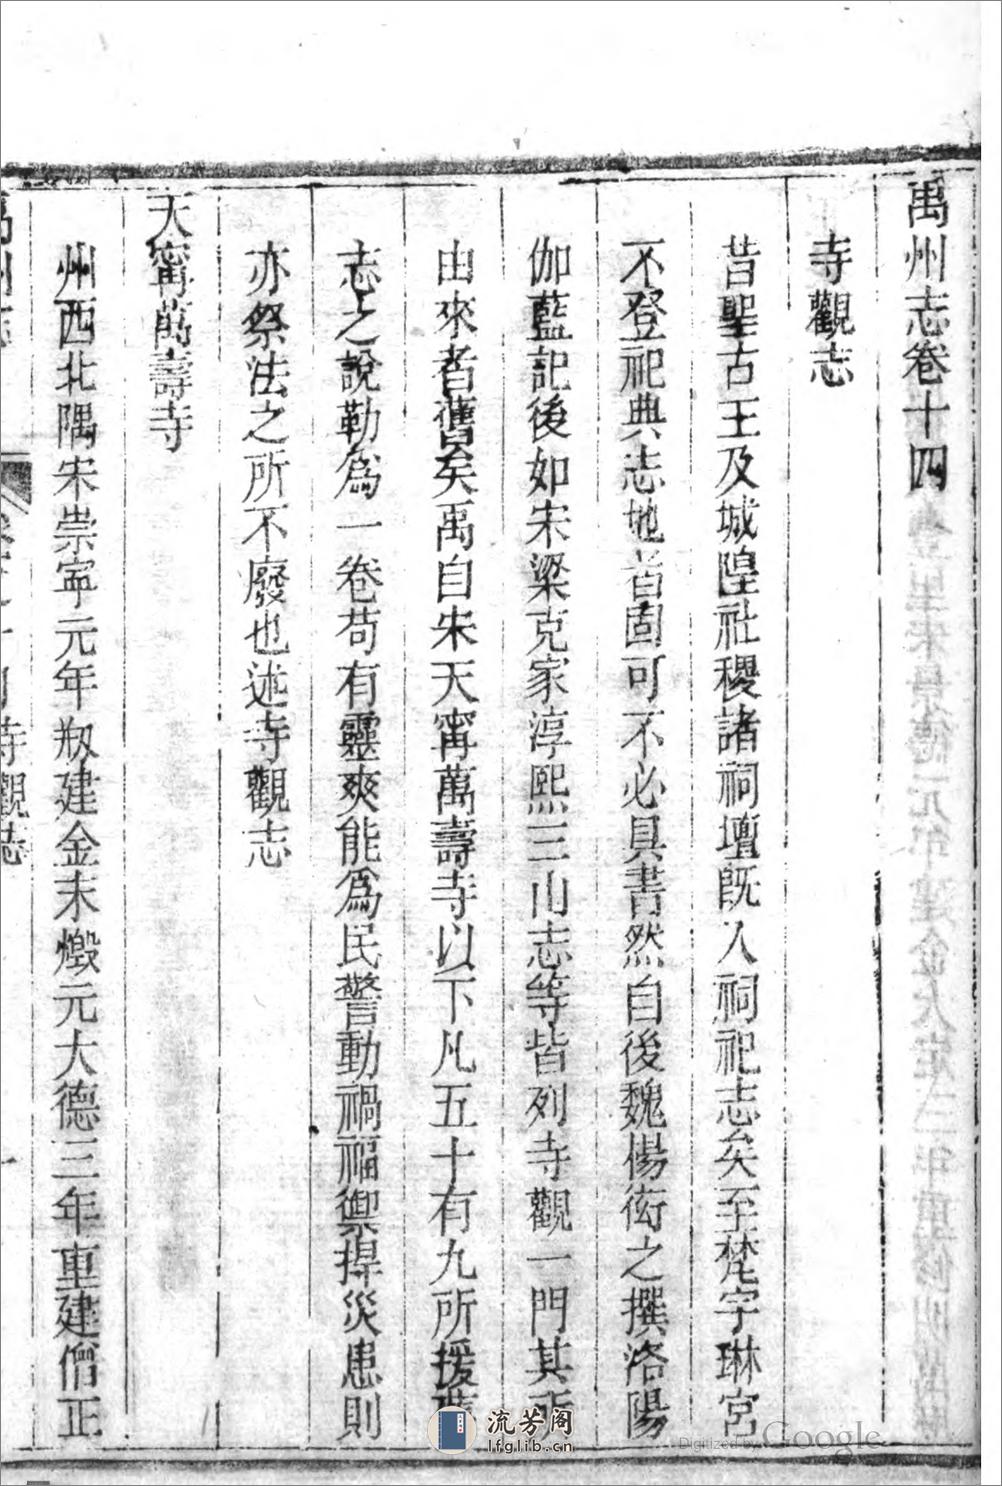 禹州志卷十四
寺觀志
昔聖古王及城隍社稷諸祠壇既入祠祀志矣至梵宇琳宮
不登祀典志地者固可不必具書然自後魏楊衒之撰洛陽
伽藍記後如宋梁克家淳熙三山志等皆列寺觀一門其所
由來者舊矣禹自宋天甯萬壽寺以下凡五十有九所援
志之說勒為一卷苟有靈爽能為民警動禍福禦捍災患則
亦祭法之所不廢也述寺觀志
天甯萬壽寺
州西北隅宋崇寧元年剏建金末燬元大德三年重建僧正
禹州志 寺觀志
流芳阁
lfglib.cn
Digitized by Google